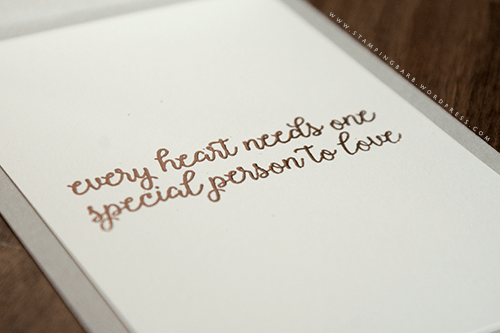 WWW.STAMPINGBARB.WORDPRESS.COM
every heart needs one
special person to love